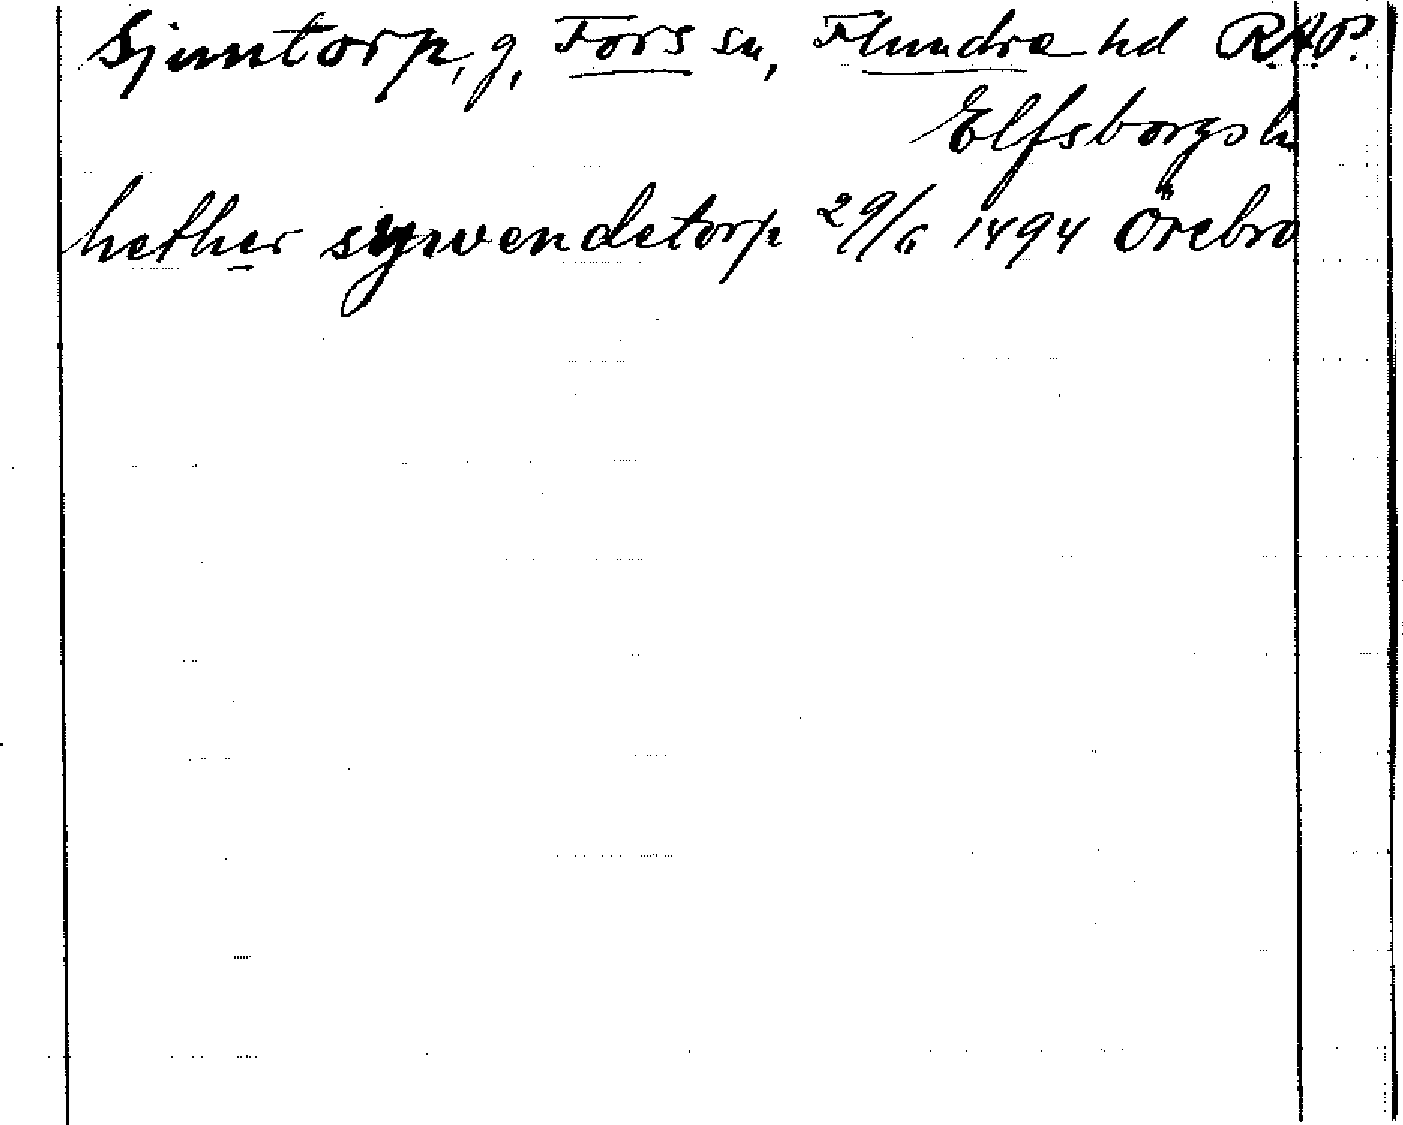 Sjuntorp, g, Fors sn, Flundre hd R.A.P.
Elfsborgs l.
hether sywendetorp 29/6 1494 Örebro